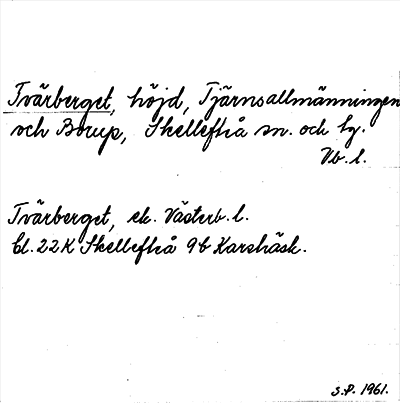 Tvärberget, höjd, Tjärnsallmänningen
och Borup, Skellefteå sn. och hg.
Vb. l.
Tvärberget, ek. Västerb. l.
bl. 22K Skellefteå 9b Karsbäsk.
S.P. 1961.